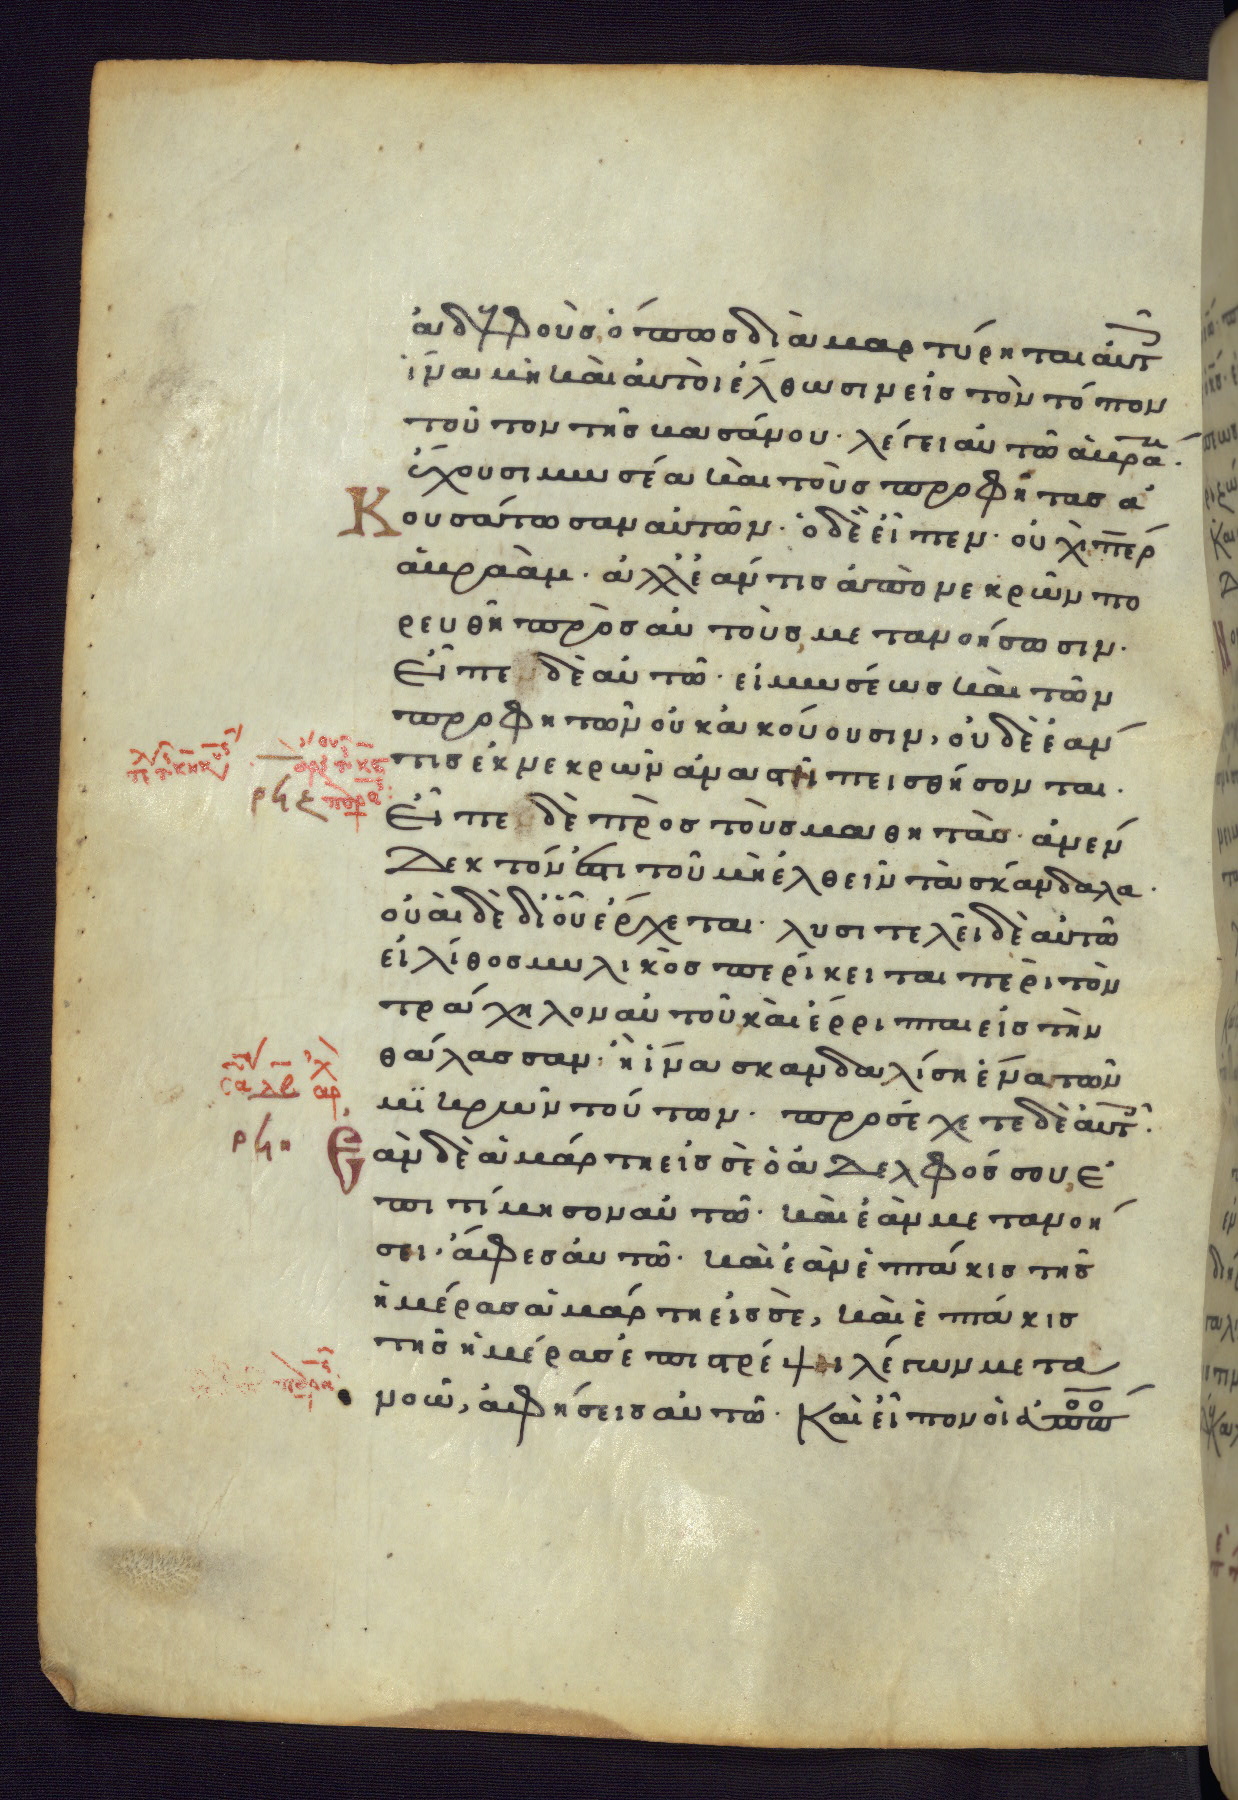 ἀδελφοὺσ, ὅπωσ διὰμαρτύρηται αὐτ
ἵνα μὴ καὶ ἀυτὸι ἔλθωσιν εἰσ τὸν τόπον
τοῦτον τῆσ βασάνου· λέγει αὐτῶ ἀβρα·
ἔχουσι μωσέα καὶ τοὺσ προφήτασ ἀ
Κουσάτωσαν αὐτῶν· ὁ δὲ εἶπεν· οὐχὶ περ
ἀβραὰμ· ἀλλ' ἐάν τισ ἀπὸ νεκρῶν πο
ρευθῆ πρὸσ αὐτοὺσ, μετανοήσωσιν·
Εἶπε δὲ αὐτῶ· εἰ μωσέωσ καὶ τῶν
προφητῶν οὐκ ἀκούουσιν, οὐδὲ ἐάν
τισ ἐκ νεκρῶν ἀναστῆ πεισθήσονται·
Εἶπε δὲ πρὸσ τοὺσ μαθητὰσ· ἀνέν
Δεκτόν ἐστι τοῦ μὴ ἐλθεῖν τὰ σκάνδαλα·
οὐαὶ δὲ δι' οὗ ἔρχεται· λυσιτελεῖ δὲ αὐτῶ
εἰ λίθοσ μυλικὸσ περίκειται περὶ τὸν
τράχηλον αὐτοῦ καὶ ἔρριπται εἰσ τὴν
θάλασσαν· ἢ ἵνα σκανδαλίση ἕνα τῶν
μϊκρῶν τούτων· προσέχετε δὲ ἀυτ·
ρϟη Εὰν δὲ ἁμάρτη εἰσ σὲ ὁ ἀΔελφόσ σου, ἐ
πιτίμησον αὐτῶ· καὶ ἐὰν μετανοή
σει· ἄφεσ ἀυτῶ· καὶ ἐὰν ἑπτάκισ τῆσ
ἡμέρασ ἁμάρτη εἰσ σὲ, καὶ ἑπτάκισ
τῆσ ἡμέρασ ἐπιστρέψει λέγων μετα
νοῶ, ἀφήσεισ αὐτῶ· Καὶ εἶπον ὁι ἀπο